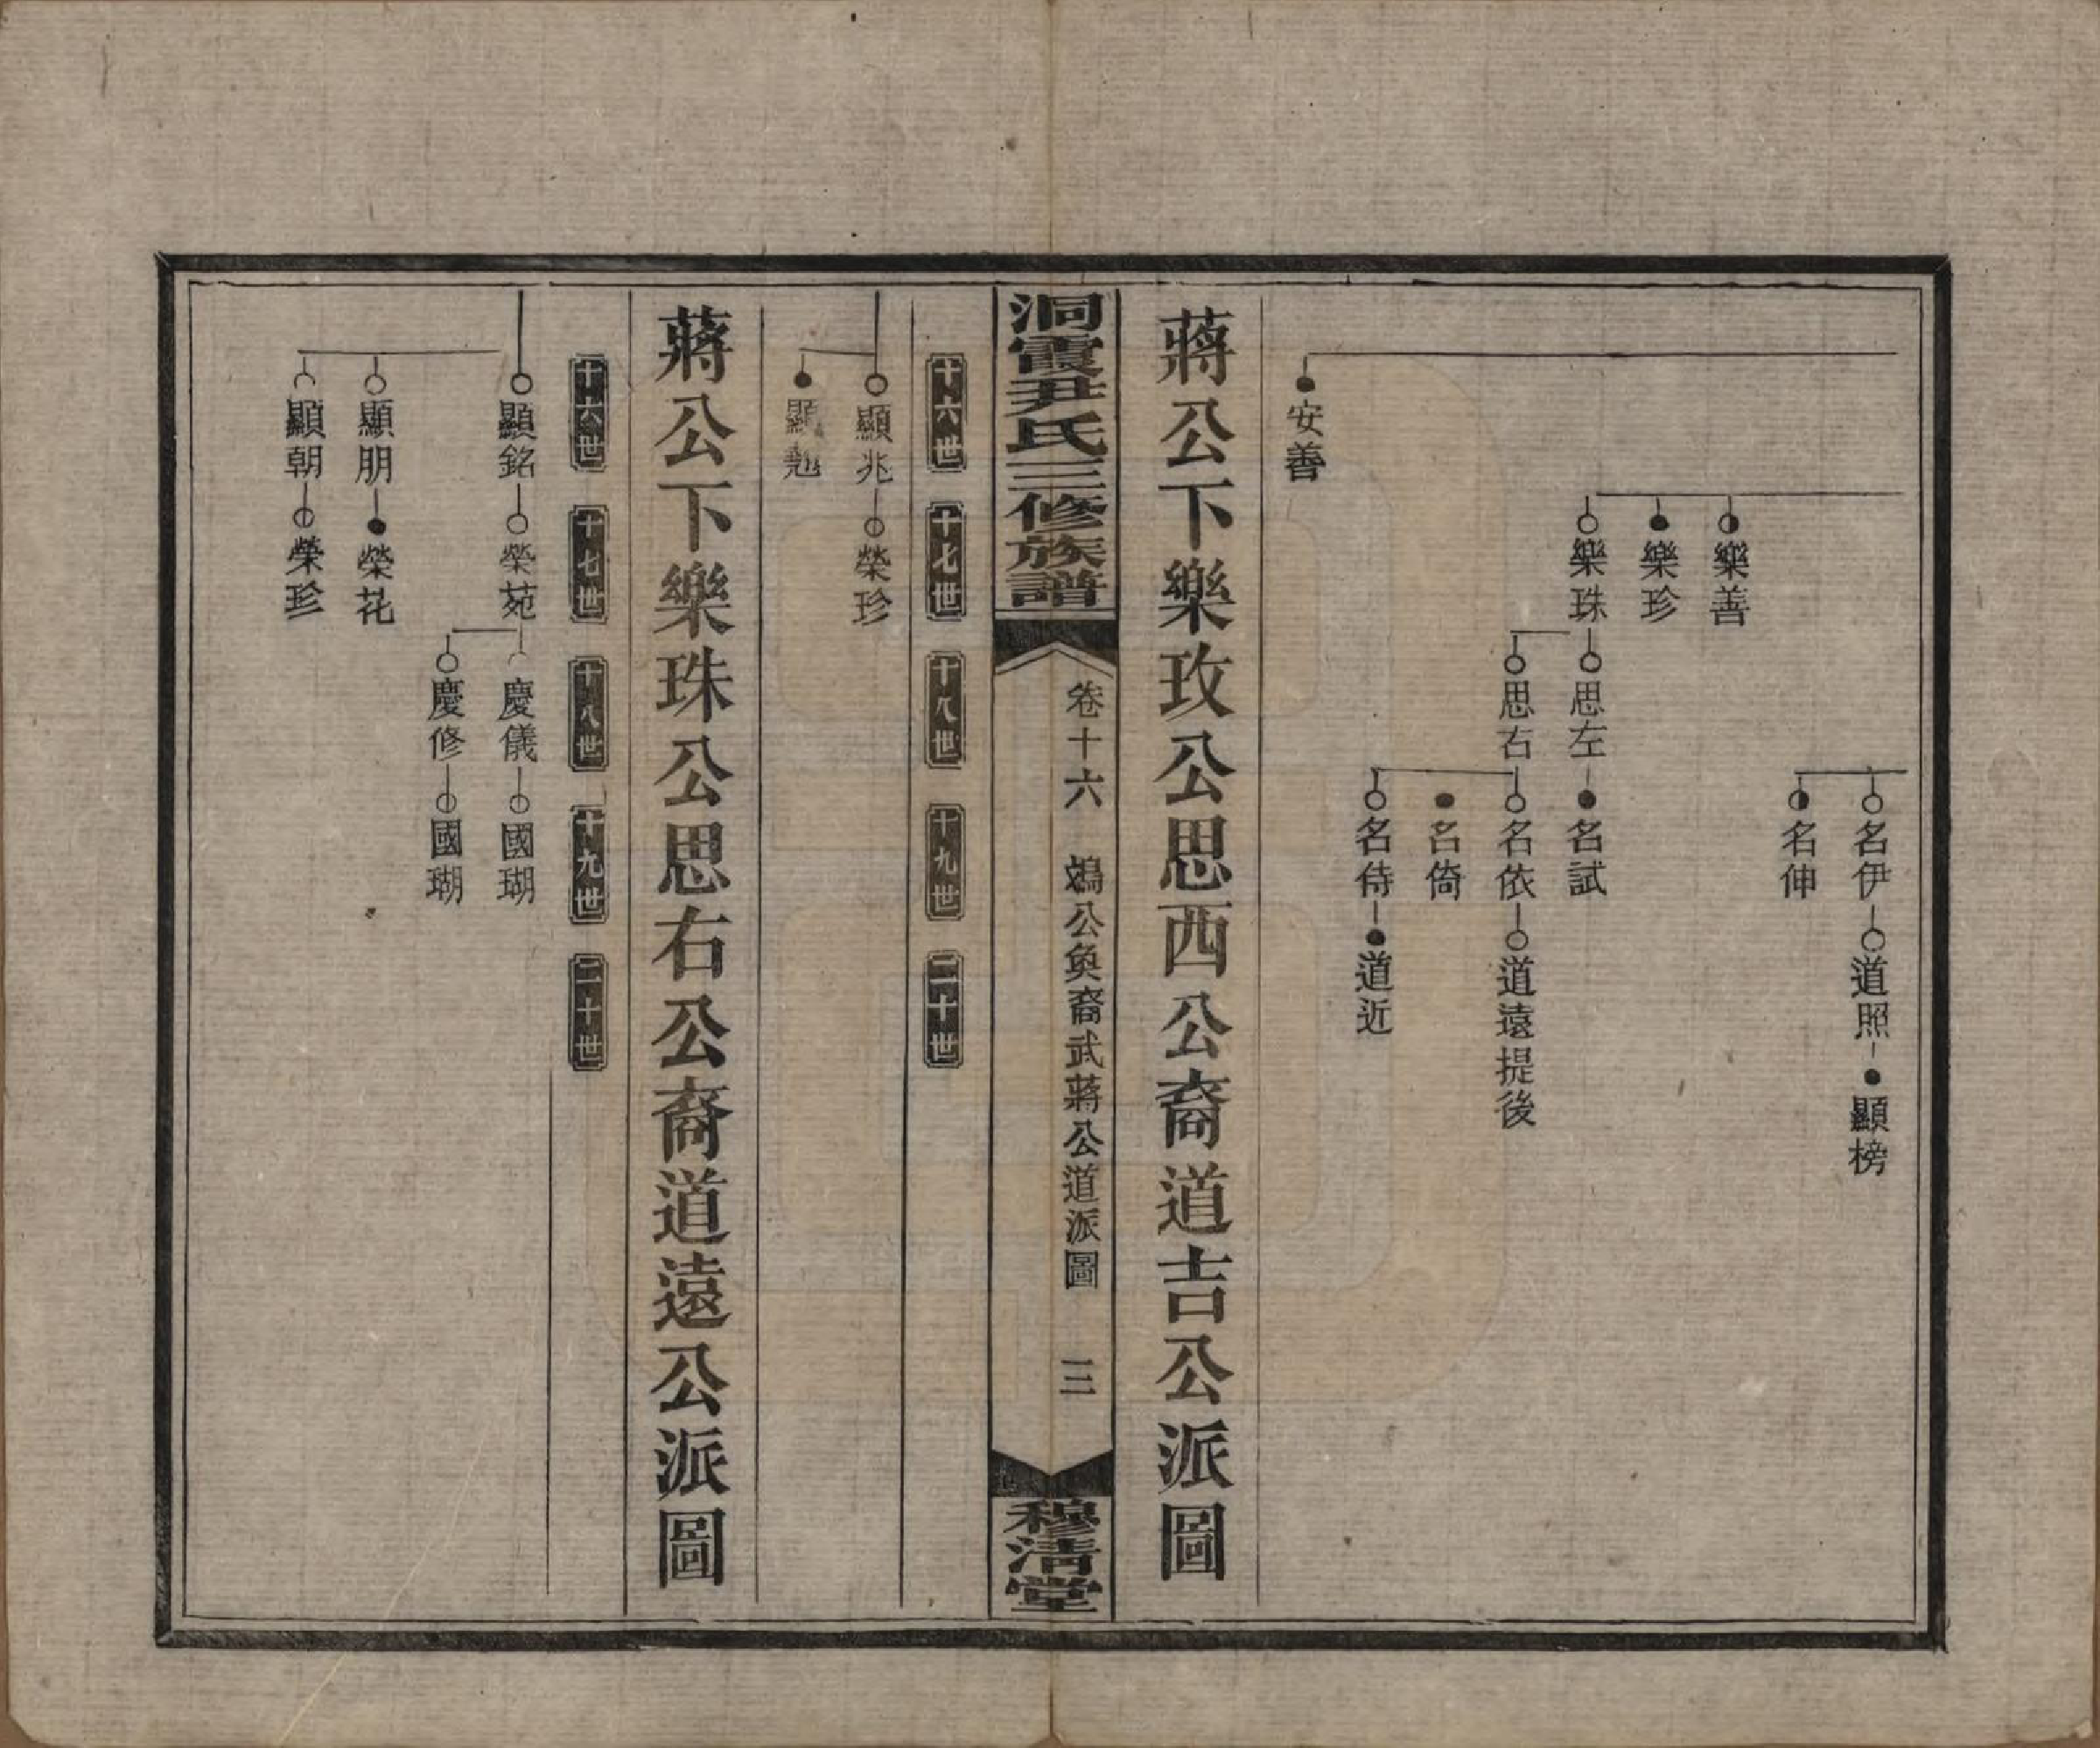 名伊 道照 顯榜
名伸
樂善
樂珍
樂珠 思左 名試
思右 名依 道遠提後
名倚
名侍 道近
安善
蔣公下樂玫公思西公裔道吉公派圖
洞霞尹氏三修族譜
卷十六 鴆公奐裔武蔣公道派圖 三
穆清堂
十六世 十七世 十八世 十九世 二十世
顯兆 榮珍
顯
蔣公下樂珠公思右公裔道遠公派圖
十六世 十七世 十八世 十九世 二十世
顯銘 榮苑 慶儀 國瑚
慶修 國瑚
顯朋 榮花
顯朝 榮珍